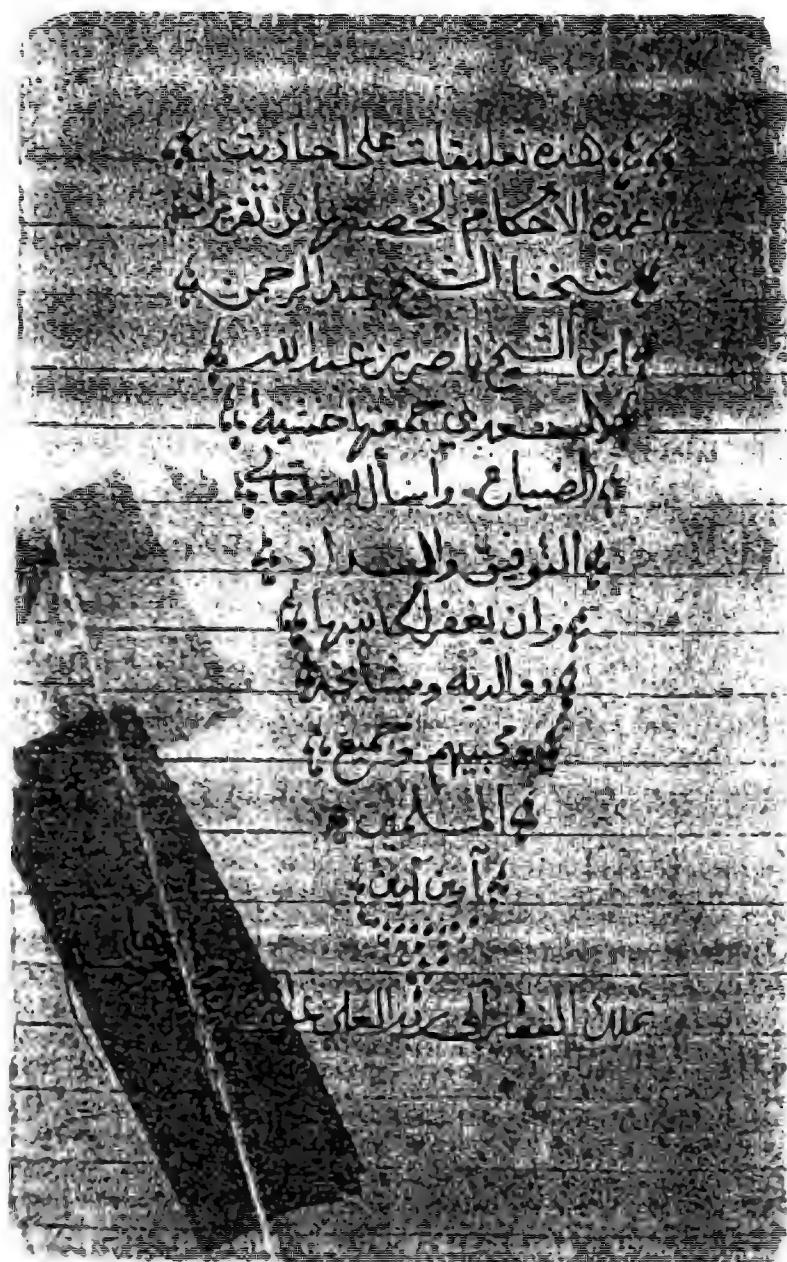 هذه تعليقات على احاديث
عمدة الأحكام لخصتها من تقريرات
شيخنا الشيخ عبد الرحمن
ابن الشيخ ناصر بن عبد الله
السعدي جمعتها خشية
الضياع. واسأل الله تعالى
التوفيق والسداد
وان يغفر لكاتبها
ووالديه ومشايخه
ومحبيهم وجميع
المسلمين
آمين آمين
الفقير الى ربه العلي